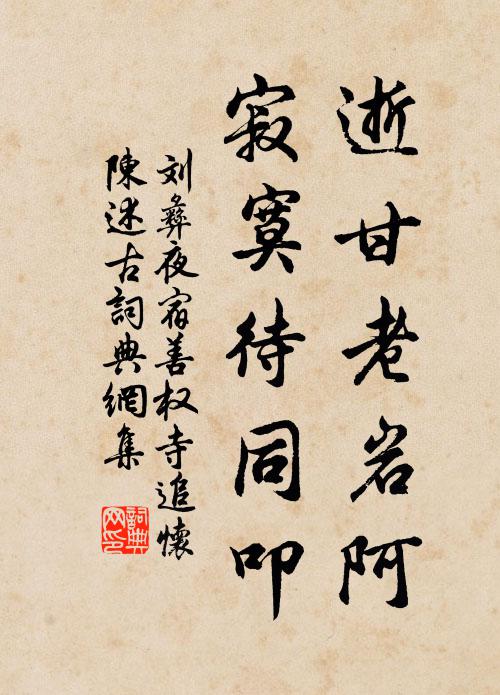 逝甘老岩阿
寂寞待同叩
刘彝夜宿善权寺追懷
陳述古詞典網集
詞典网印